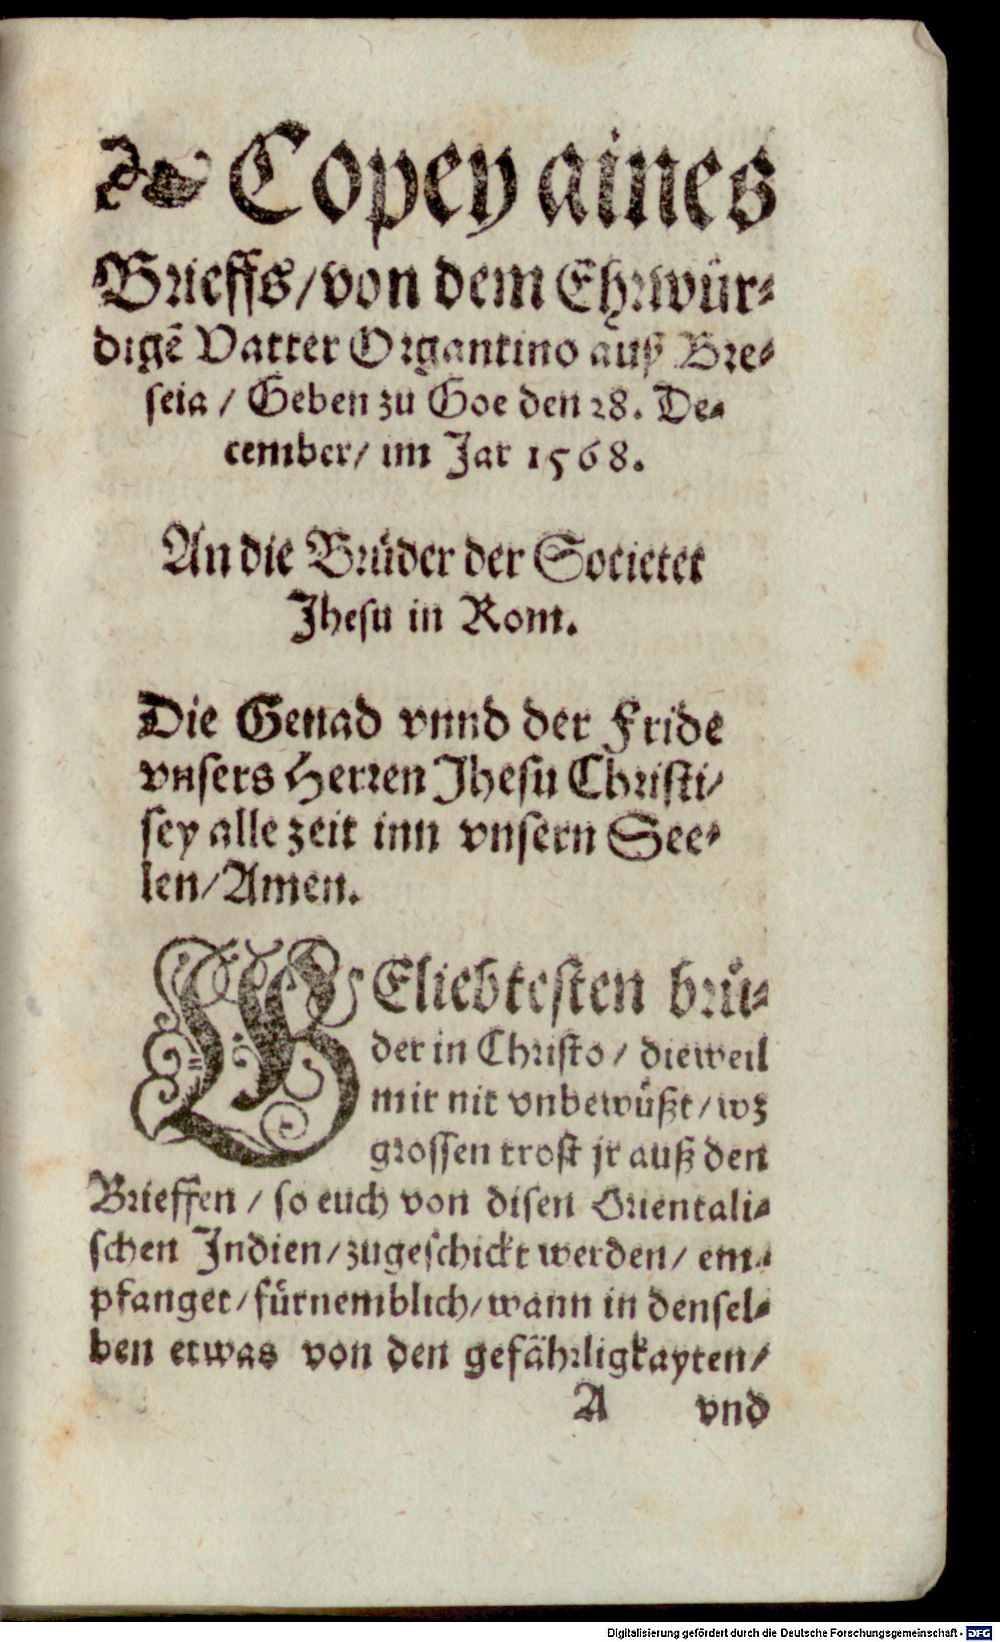 Copey aines
Brieffs/von dem Ehrwür⸗
digẽ Vatter Organtino auß Bre⸗
seia / Geben zu Goe den 28. De⸗
cember/ im Jar 1568.
An die Brüder der Societet
Jhesu in Rom.
Die Genad vnnd der Fride
vnsers Herren Jhesu Christi/
sey alle zeit inn vnsern See⸗
len/Amen.
BEliebtesten brü⸗
der in Christo / dieweil
mir nit vnbewüßt/wz
grossen trost jr auß den
Brieffen / so euch von disen Orientali⸗
schen Indien/zugeschickt werden/ em⸗
pfanget/fürnemblich/wann in densel⸗
ben etwas von den gefährligkayten/
A vnd
Digitalisierung gefördert durch die Deutsche Forschungsgemeinschaft - DFG